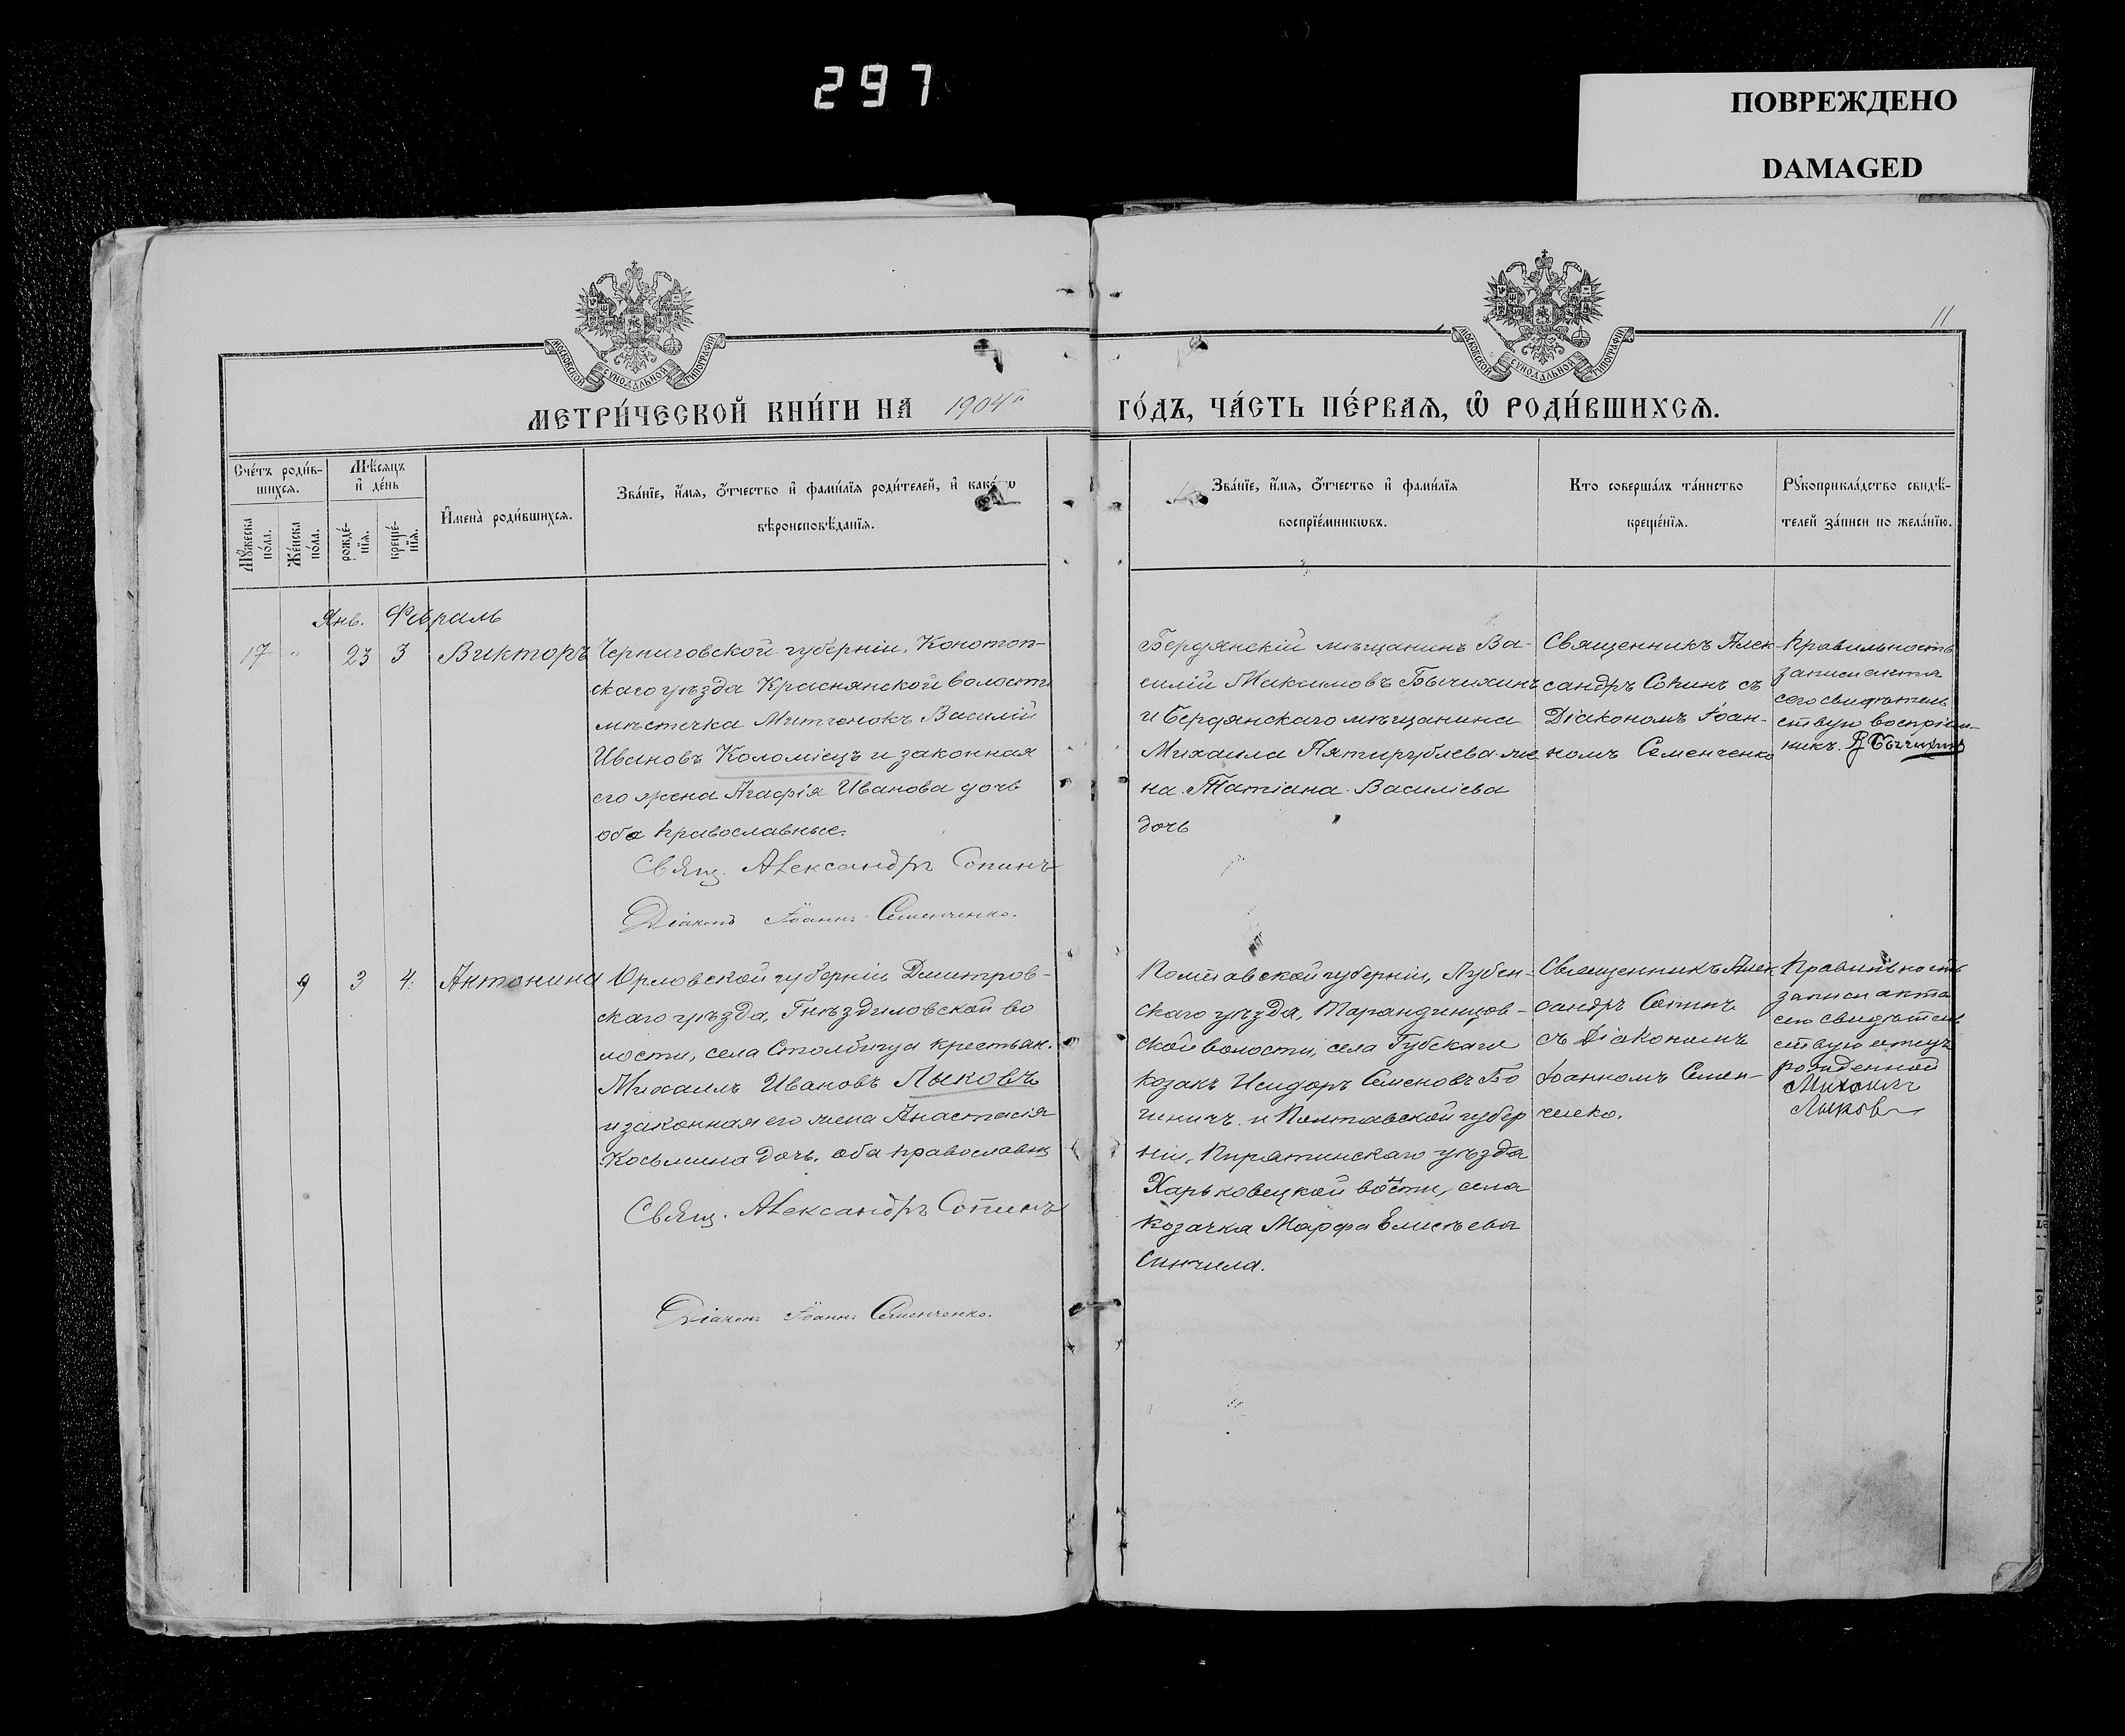 297
ПОВРЕЖДЕНО
DAMAGED
11
МОСКОВСКОЙ СѴНОДАЛЬНОЙ ТИПОГРАФІИ
МОСКОВСКОЙ СѴНОДАЛЬНОЙ ТИПОГРАФІИ
МЕТРИ́ЧЕСКОЙ КНИ́ГИ НА 1904й
ГО́ДЪ, ЧА́СТЬ ПЕ́РВАѦ, Ѡ҃ РОДИ́ВШИХСѦ.
Сче́тъ роди́в-
шихсѧ.
Мѣ́сѧцъ
и҆ де́нь
Мꙋ́жеска по́ла.
Же́нска по́ла.
рожде́-
нїѧ.
креще́-
нїѧ.
И҆мена̀ роди́вшихсѧ.
Зва́нїе, и҆́мѧ, ѻ҆́тчество и҆ фами́лїѧ роди́телей, и҆
вѣроисповѣ́данїѧ.
Зва́нїе, и҆́мѧ, ѻ҆́тчество и҆ фами́лїѧ
воспрїе́мникѡвъ.
Кто соверша́лъ та́инство
креще́нїѧ.
Рꙋкоприкла́дство свидѣ́-
телей за́писи по жела́нїю.
Янв. Февраль
17 " 23 3 Викторъ
Черниговской губерніи, Конотоп-
скаго уѣзда Краснянской волости
мѣстечка Митченокъ Василій
Ивановъ Коломіецъ и законная
его жена Агафія Иванова дочь
оба православные.
Свящ. Александръ Сопинъ
Діаконъ Іоаннъ Семенченко.
Бердянскій мѣщанинъ Ва-
силій Максимовъ Бычихинъ
и Бердянскаго мѣщанина
Михаила Пятирублева же
на Татіана Василіева
дочь
Священникъ Алек
сандръ Сопинъ съ
Діакономъ Іоан-
номъ Семенченко
Правильность
записи акта
сего свидѣтель
ствую воспріем-
никъ. В Бычихинъ
9 3 4. Антонина
Орловской губерніи Дмитров-
скаго уѣзда, Гнѣздиловской во
лости, села Столбища крестьян.
Михаилъ Ивановъ Лыковъ
и законная его жена Анастасія
Косьмина дочь, оба православны
Свящ. Александръ Сопинъ
Діаконъ Іоаннъ Семенченко.
Полтавской губерніи, Лубен-
скаго уѣзда, Тарандинцов-
ской волости, села Губскаго
козакъ Исидоръ Семеновъ Бо
гиничъ и Полтавской губер
ніи, Пирятинскаго уѣзда
Харьковецкой вости, села
козачка Марфа Елисѣева
Синчила.
Священникъ Алек
сандръ Сопинъ
съ Діакономъ
Іоанномъ Семен-
ченко.
Правильность
записи акта
сего свидѣтель
ствую отецъ
рожденной
Михаилъ
Лыковъ